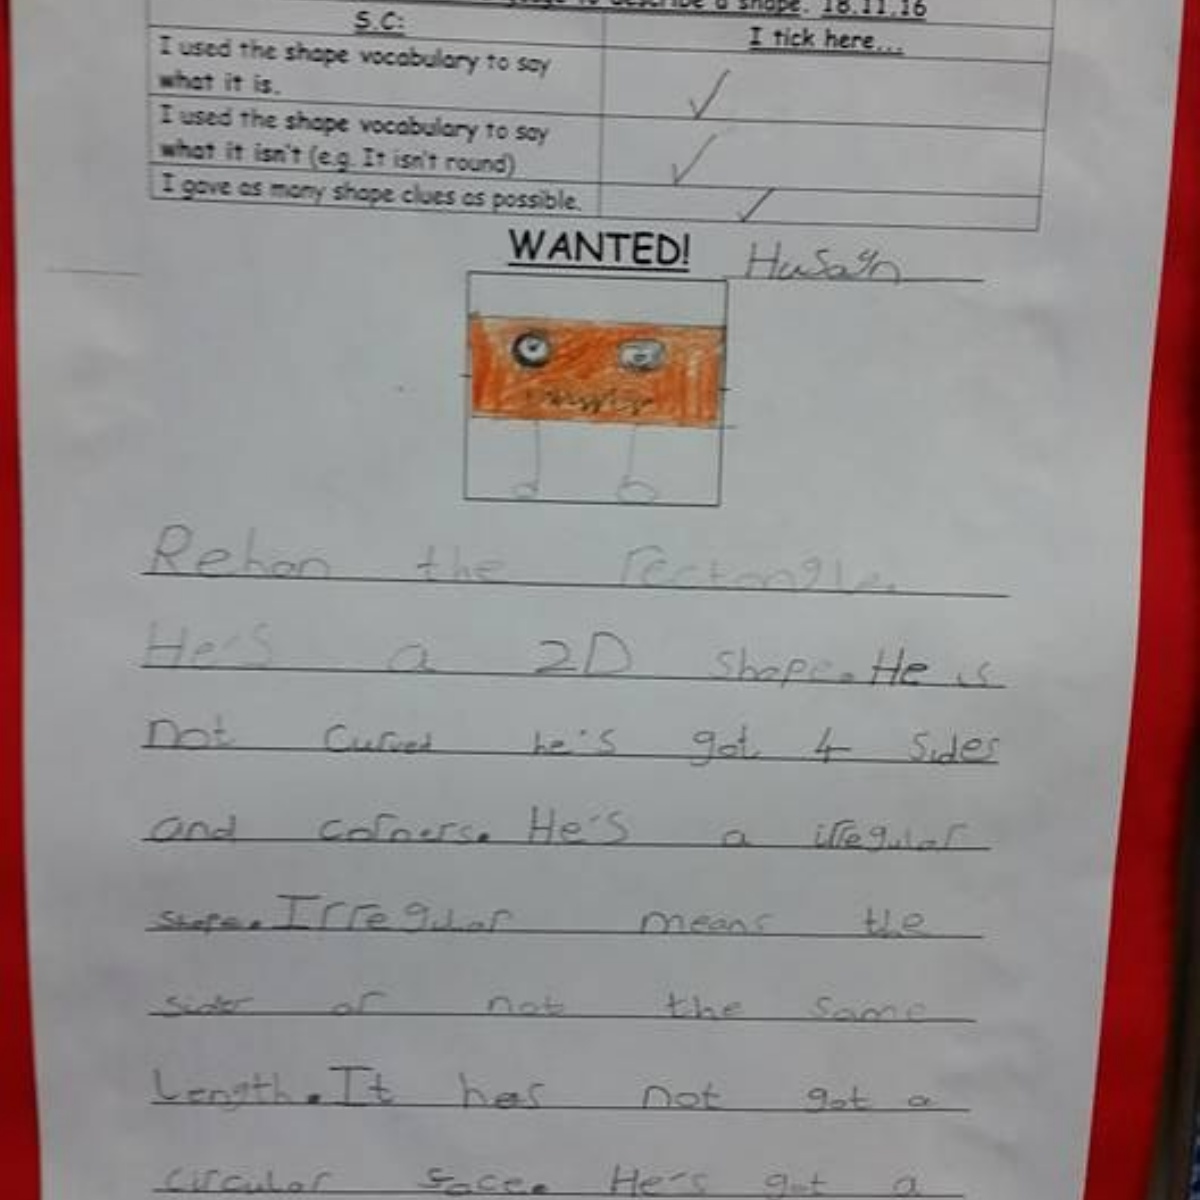 to describe a shape. 18.11.16
S.C:
I tick here...
I used the shape vocabulary to say
what it is.
I used the shape vocabulary to say
what it isn't (e.g. It isn't round)
I gave as many shape clues as possible.
WANTED!
Husayn
Rehan the rectangle.
He's a 2D shape. He is
not curved he's got 4 sides
and corners. He's a irregular
shape. Irregular means the
sides ar not the same
Length. It has not got a
circular face. He's got a